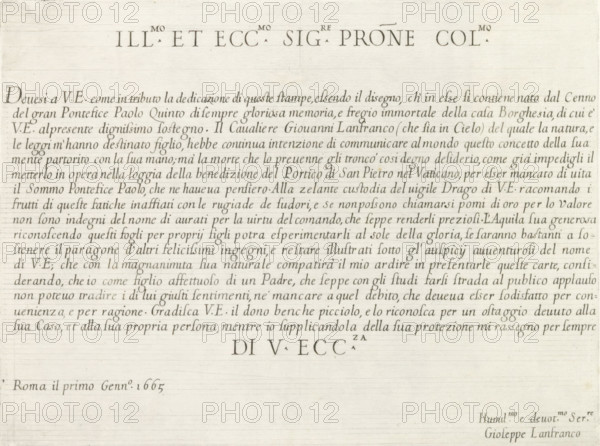 ILL.MO ET ECC.MO SIG.RE PRŌNE COL.MO
Deuesi a V.E. come in tributo la dedicazione di queste stampe, essendo il disegno, ch'in esse si contiene nato dal Cenno
del gran Pontefice Paolo Quinto di sempre gloriosa memoria, e fregio immortale della casa Borghesia, di cui e'
V.E. al presente dignissimo sostegno. Il Caualiere Giouanni Lanfranco (che sia in Cielo) del quale la natura, e
le leggi m'hanno destinato figlio, hebbe continua intenzione di communicare al mondo questo concetto della sua
mente partorito con la sua mano; mà la morte che preuenne gli troncò cosi degno desiderio, come già impedigli il
metterlo in opera nella loggia della benedizione del Portico di San Pietro nel Vaticano, per esser mancato di uita
il Sommo Pontefice Paolo, che ne haueua pensiero. Alla zelante custodia del uigile Drago di V.E. racomando i
frutti di queste fatiche inaffiati con le rugiade de sudori, e se non possono chiamarsi pomi di oro per lo valore
non sono indegni del nome di aurati per la uirtu del comando, che seppe renderli preziosi. L'Aquila sua generosa
riconoscendo questi fogli per proprij figli potra esperimentarli al sole della gloria, se saranno bastanti a so-
stenere il paragone d'altri felicissimi ingegni, e restare illustrati sotto gli auspicij auuenturosi del nome
di V.E; che con la magnanimita sua naturale compatirà il mio ardire in presentarle queste carte, consi-
derando, che io come figlio affettuoso di un Padre, che seppe con gli studi farsi strada al publico applauso
non poteuo tradire i di lui giusti sentimenti, ne' mancare a quel debito, che deueua esser sodisfatto per con-
uenienza, e per ragione. Gradisca V.E. il dono benche picciolo, e lo riconosca per un ostaggio deuuto alla
sua Casa, et alla sua propria persona mentre io supplicandola della sua protezione mi rassegno per sempre
DI V. ECC.ZA
Roma il primo Genn.o 1665
Humil.mo e deuot.mo Ser.re
Gioseppe Lanfranco